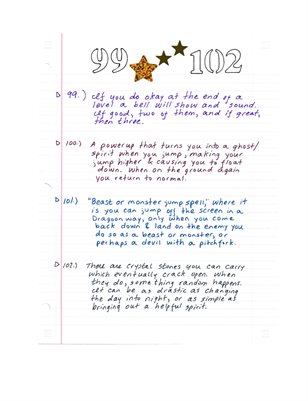 99 102
▷ 99.) If you do okay at the end of a
level a bell will show and sound.
If good, two of them, and if great,
then three.
▷ 100.) A powerup that turns you into a ghost/
spirit when you jump, making your
jump higher & causing you to float
down. When on the ground again
you return to normal.
▷ 101.) "Beast or monster jump spell," where it
is you can jump off the screen in a
Dragoon way, only when you come
back down & land on the enemy you
do so as a beast or monster, or
perhaps a devil with a pitchfork.
▷ 102.) There are crystal stones you can carry
which eventually crack open. When
they do, something random happens.
It can be as drastic as changing
the day into night, or as simple as
bringing out a helpful spirit.